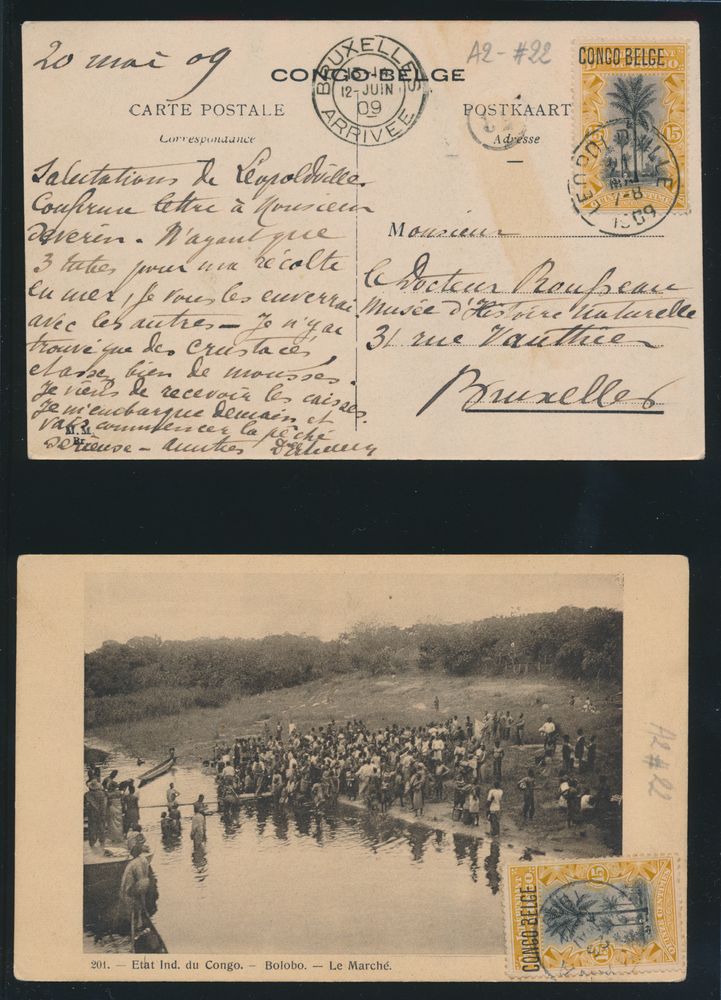 20 mai 09
CONGO BELGE
A2-#22
CARTE POSTALE
POSTKAART
Correspondance
Adresse
BRUXELLES
12-JUIN
09
ARRIVÉE
CONGO BELGE
15
LEOPOLDVILLE
7-8
1909
Salutations de Léopoldville
Confirme lettre à Monsieur
Severin. N'ayant que
3 tubes pour ma récolte
en mer, je vous les enverrai
avec les autres - Je n'y ai
trouvé que des crustacés
et assez bien de mousses.
Je viens de recevoir les caisses.
Je m'embarque demain et
vais commencer la pêche
sérieuse - amitiés
M.M.
Br.
Monsieur
le Docteur Rousseau
Musée d'Histoire Naturelle
31 rue Vautier
Bruxelles
A2 #22
201. — Etat Ind. du Congo. — Bolobo. — Le Marché.
CONGO BELGE
15